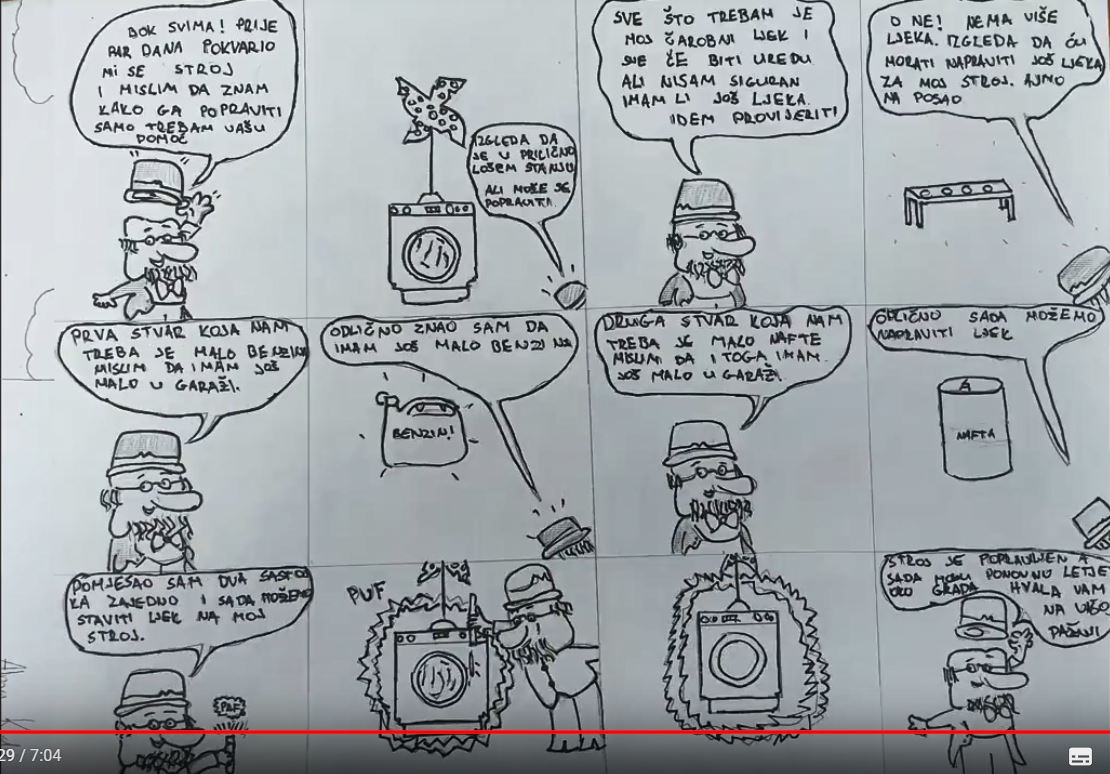 BOK SVIMA! PRIJE
PAR DANA POKVARIO
MI SE STROJ
I MISLIM DA ZNAM
KAKO GA POPRAVITI
SAMO TREBAM VAŠU
POMOĆ
IZGLEDA DA
JE U PRILIČNO
LOŠEM STANJU
ALI MOŽE SE
POPRAVITI.
SVE ŠTO TREBAM JE
MOJ ČAROBNI LJEK I
SVE ĆE BITI UREDU
ALI NISAM SIGURAN
IMAM LI JOŠ LJEKA.
IDEM PROVIJERITI
O NE! NEMA VIŠE
LJEKA. IZGLEDA DA ĆU
MORATI NAPRAVITI JOŠ LJEKA
ZA MOJ STROJ. AJMO
NA POSAO
PRVA STVAR KOJA NAM
TREBA JE MALO BENZINA
MISLIM DA IMAM JOŠ
MALO U GARAŽI.
ODLIČNO ZNAO SAM DA
IMAM JOŠ MALO BENZINA
BENZIN!
DRUGA STVAR KOJA NAM
TREBA JE MALO NAFTE
MISLIM DA I TOGA IMAM
JOŠ MALO U GARAŽI.
ODLIČNO SADA MOŽEMO
NAPRAVITI LJEK
NAFTA
POMJEŠAO SAM DVA SASTOJ
KA ZAJEDNO I SADA MOŽEMO
STAVITI LJEK NA MOJ
STROJ.
PAF
PUF
STROJ JE POPRAVLJEN A
SADA MOGU PONOVNO LETJE
OKO GRADA HVALA VAM
NA VAŠO
PAŽNJI
29 / 7:04